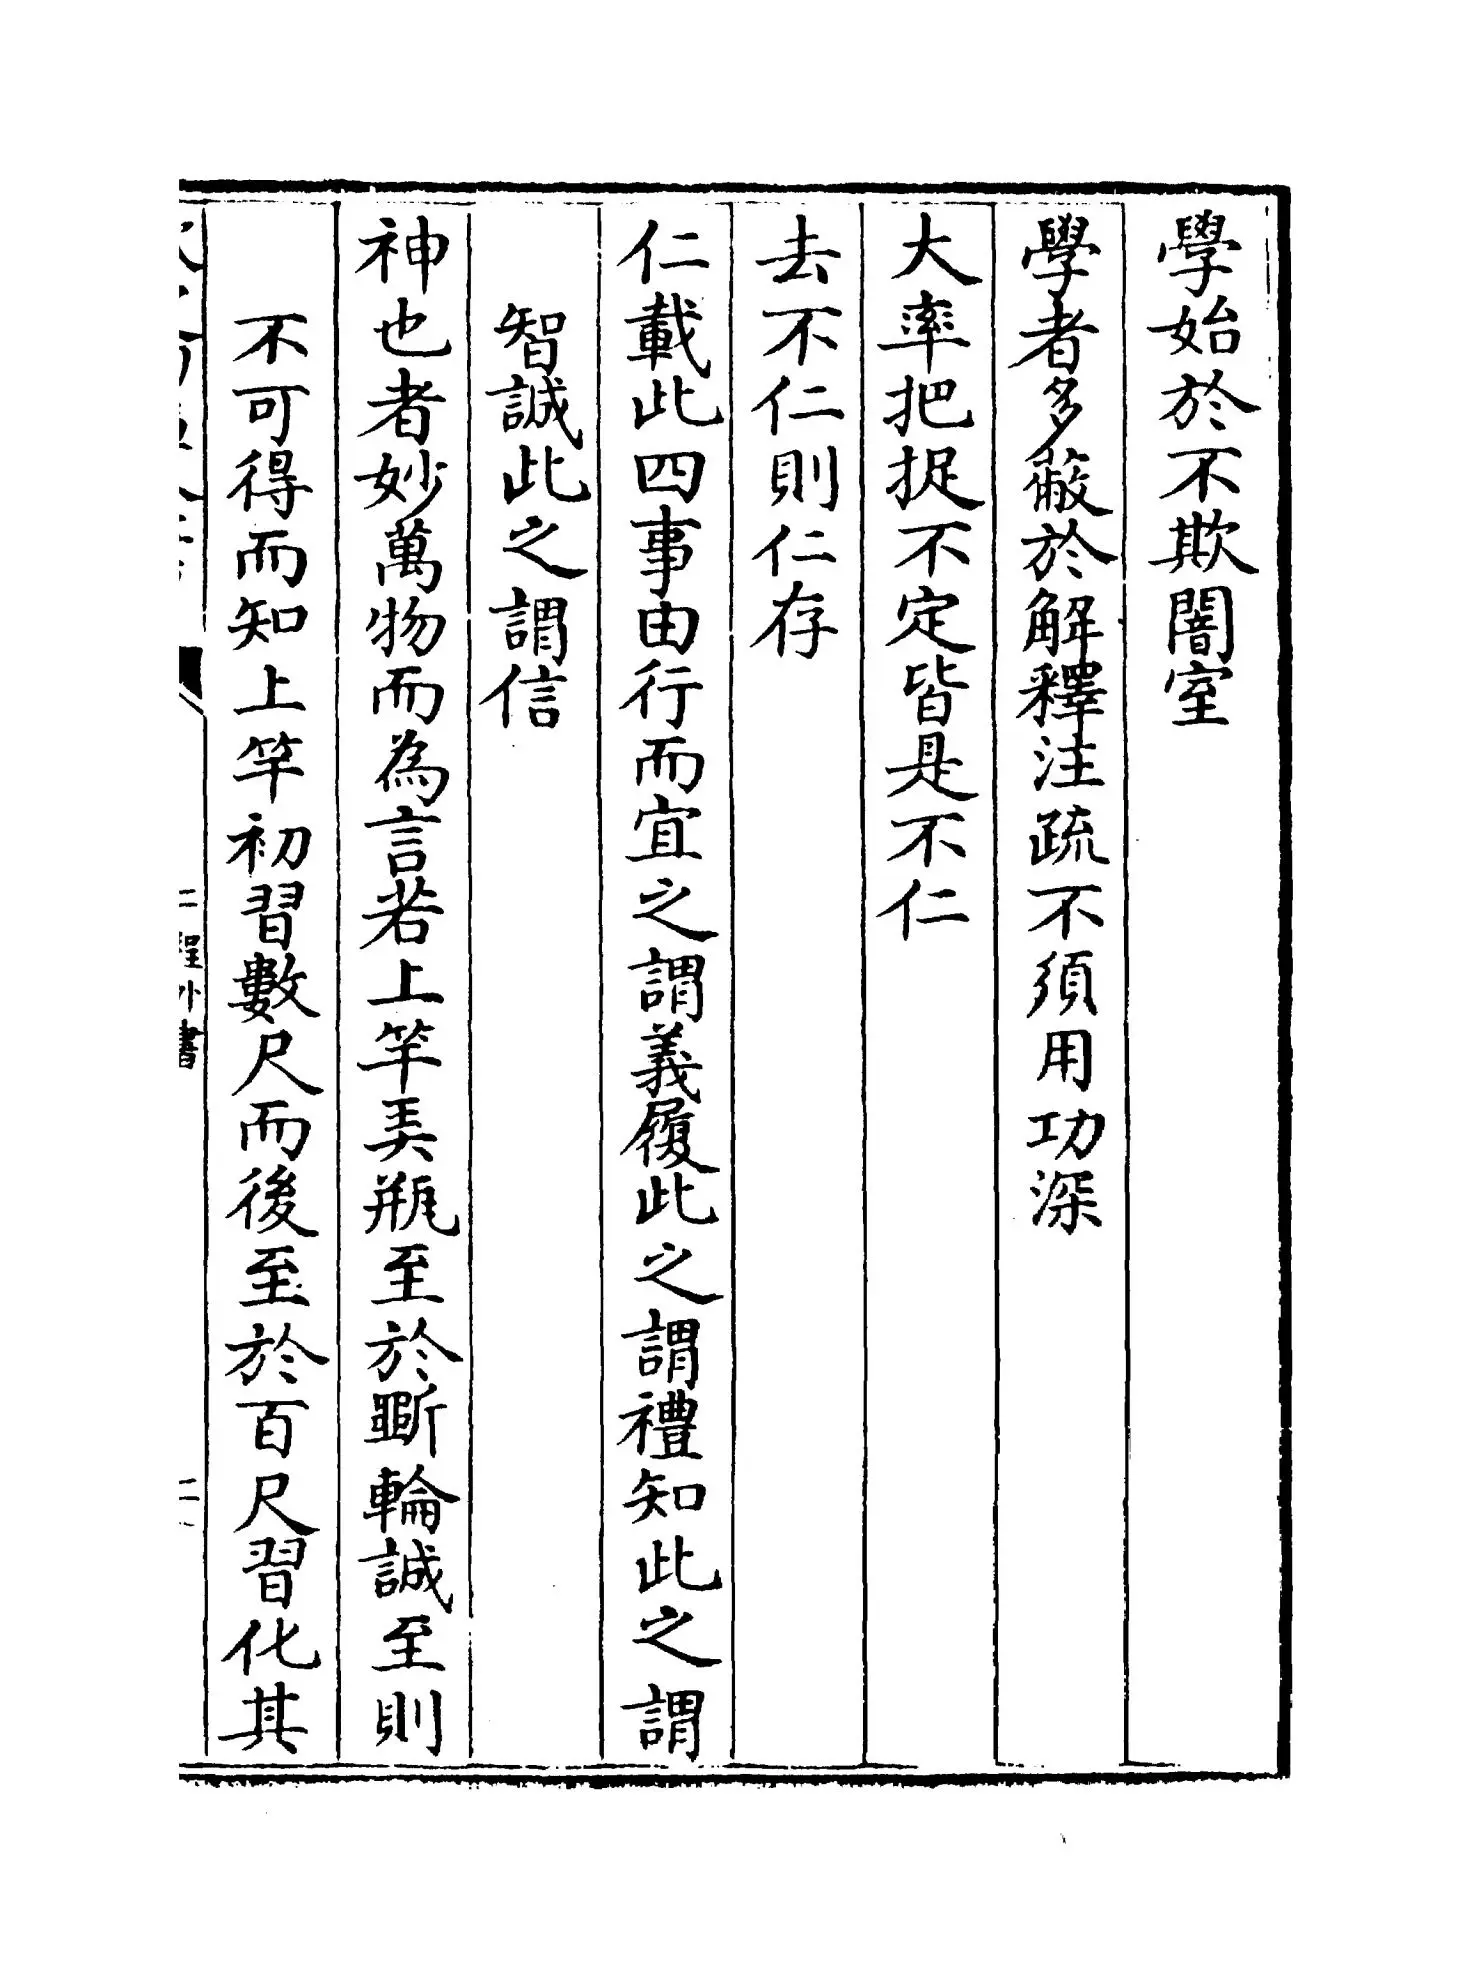 學始於不欺闇室
學者多蔽於解釋注疏不須用功深
大率把捉不定皆是不仁
去不仁則仁存
仁載此四事由行而宜之謂義履此之謂禮知此之謂
智誠此之謂信
神也者妙萬物而為言若上竿弄瓶至於斵輪誠至則
不可得而知上竿初習數尺而後至於百尺習化其
二程外書
二